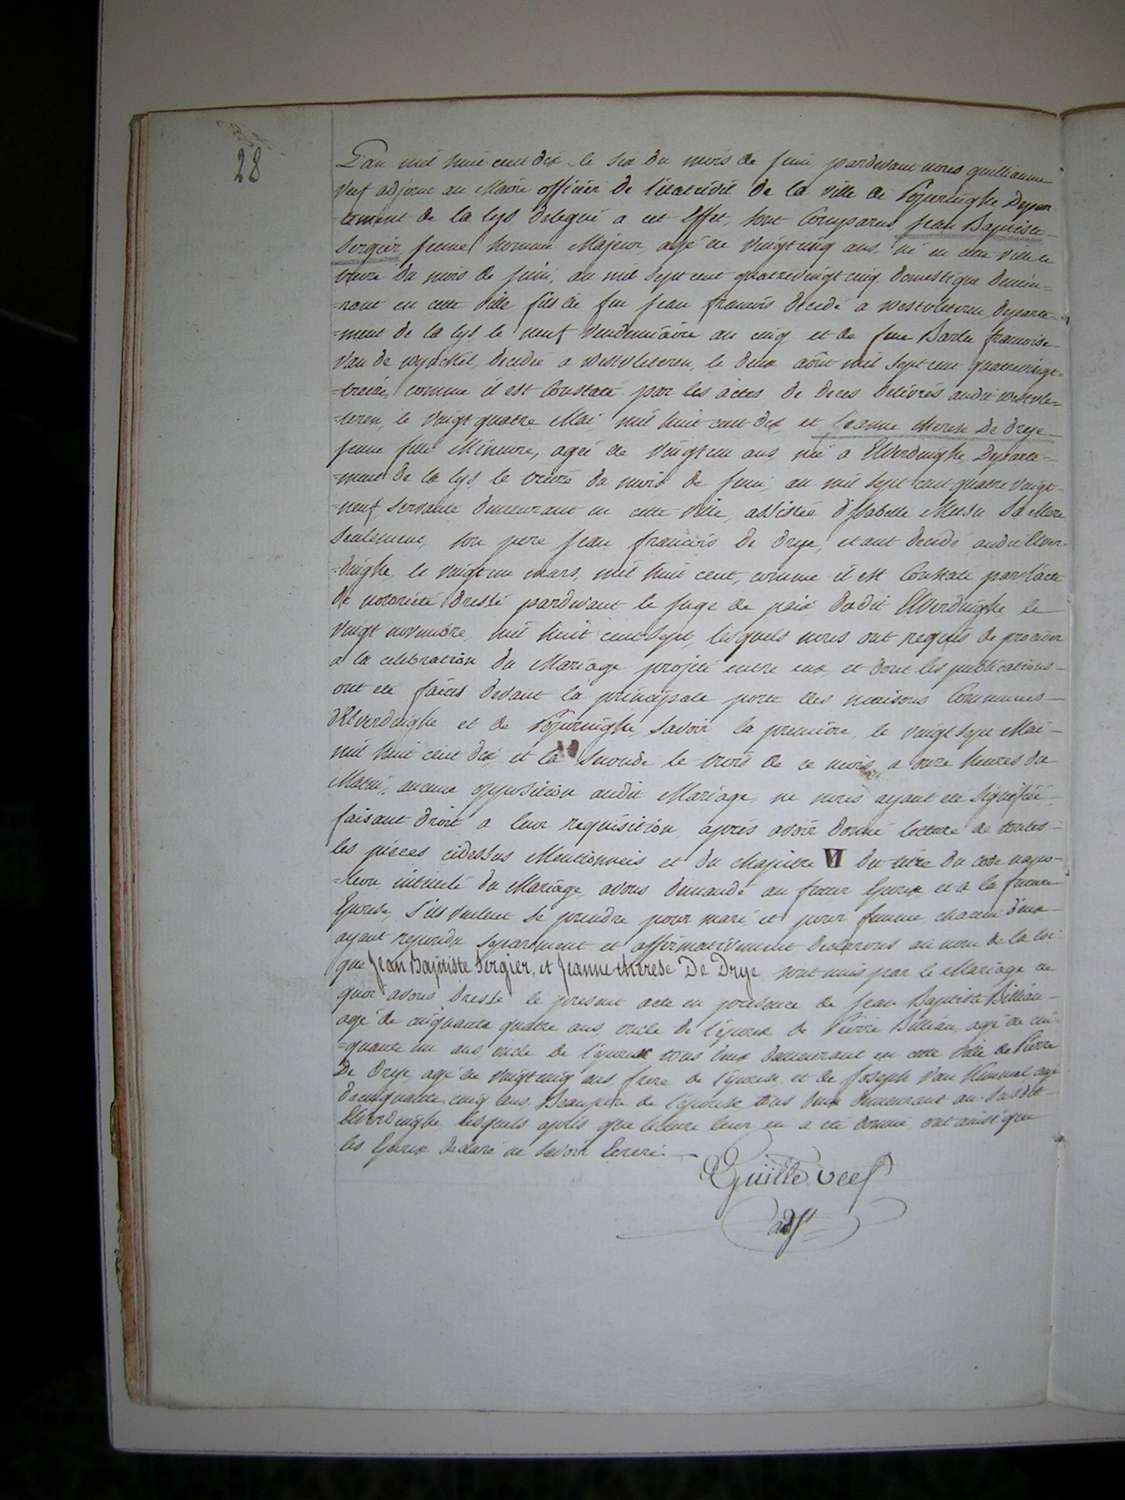 28
L'an mil huit cent dix le six du mois de juin pardevant nous guilliaume
Veef adjoint au Maire officier de l'état civil de la ville de Poperinghe Depar-
tement de la Lys delegué a cet Effet, sont Comparus, Jean Baptiste
Sergier, jeune homme Majeur, agé de vingt cinq ans, né en cette ville le
treize du mois de juin, an mil sept cent quatrevingt cinq domestique demeu-
=rant en cette ville fils de feu Jean francois decedé a westvleteren, departe-
=ment de la Lys le neuf vendemiaire an cinq et de feue Barbe francoise
Van de wynckel, decedée a westvleteren, le deux août mil sept cent quatrevingt-
=treize, comme il est Constaté par les actes de deces delivrés audit westvle-
=teren, le vingt quatre Mai mil huit cent dix, et Jeanne therese De Drye
jeune fille Mineure, agée de vingt un ans née a Elverdinghe, Departe-
=ment de la Lys le treize du mois de juin, an mil sept cent quatre vingt-
=neuf servante demeurant en cette ville, assistée d'Isabelle sa Mere
seulement, son pere Jean francois De Drye, etant decedé audit Elver-
=dinghe le vingt un mars, mil huit cent, comme il est Constaté par l'acte
de notorieté dressé pardevant le juge de paix dudit Elverdinghe le
vingt novembre, mil huit cent sept, lesquels nous ont requis de proceder
a la celebration du Mariage projeté entre eux et dont les publications
ont été faites devant la principale porte des maisons Communes
d'Elverdinghe et de Poperinghe, savoir la premiere, le vingt sept Mai
mil huit cent dix et la seconde le trois de ce mois, a onze heures du
Matin, aucune opposition audit Mariage ne nous ayant été signifiée
faisant droit a leur requisition, après avoir donné lecture de toutes
les pieces cidessus Mentionnées et du chapitre VI du titre du code napo-
=leon intitulé du Mariage, avons demandé au futur Epoux et a la future
Epouse, s'ils veulent se prendre pour mari et pour femme chacun d'eux
ayant repondu separement et affirmativement declarons au nom de la loi
que Jean Baptiste Sergier, et Jeanne therese De Drye sont unis par le Mariage en
quoi avons dressé le present acte en presence de Jean Baptiste Billiau
agé de cinquante quatre ans, oncle de l'époux de Pierre Billiau, agé de cin-
=quante un ans oncle de l'époux tous deux demeurant en cette ville de Pierre
De Drye, agé de vingt cinq ans, frere de l'épouse, et de Joseph Van agé
de cinquante cinq ans, Beaupere de l'épouse tous deux demeurant au susdit
Elverdinghe lesquels après que lecture leur en a été donné ont ainsi que
les Epoux declaré ne savoir Ecrire.
Guille Veef
adjt